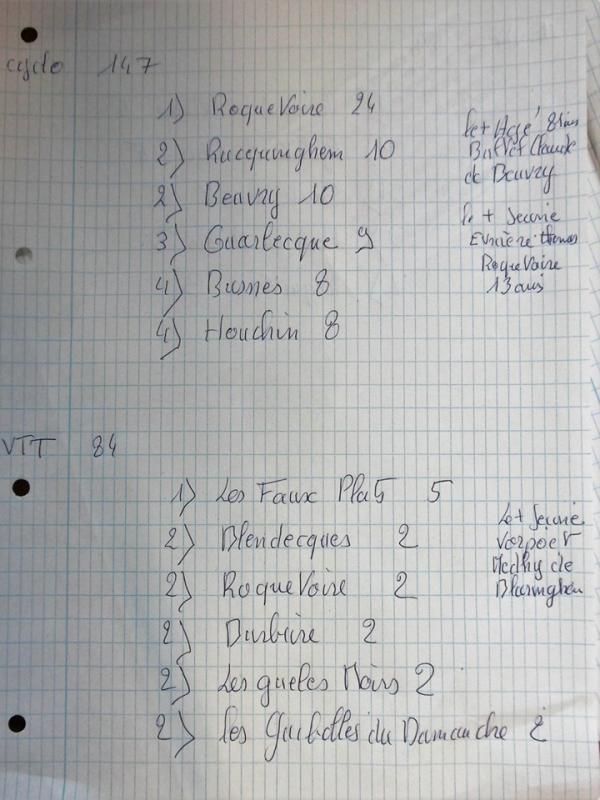 cyclo 147
1) RoqueVoire 24
2) Racquinghem 10
2) Beuvry 10
3) Guarbecque 9
4) Busnes 8
4) Houchin 8
Le + Agé 81 ans
Claude
de Beuvry
le + Jeune
thomas
RoqueVoire
13 ans
VTT 84
1) Les Faux Plats 5
2) Blendecques 2
2) RoqueVoire 2
2) 2
2) Les gueles Noirs 2
2) Les du Damanche 2
Le + Jeune
de